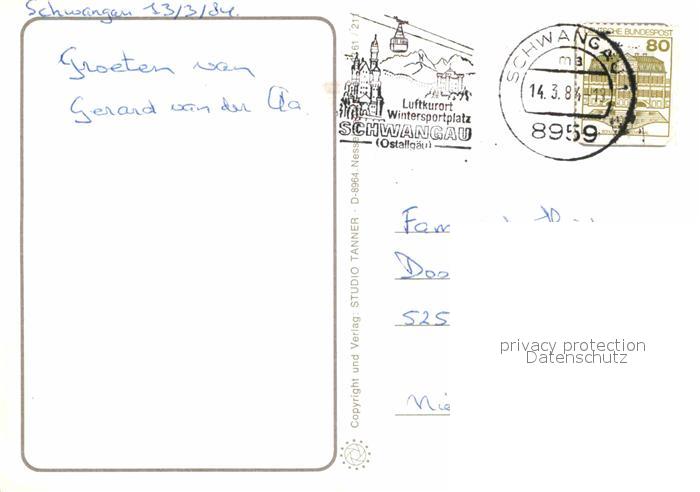 Schwangau 13/3/84.
Groeten van
Gerard van der
Luftkurort
Wintersportplatz
SCHWANGAU
(Ostallgäu)
SCHWANGAU 1
ma
14.3.84
8959
DEUTSCHE BUNDESPOST
80
Copyright und Verlag: STUDIO TANNER · D-8964 Nesse 61 / 211
Fam
Doo
525
Nie
privacy protection
Datenschutz